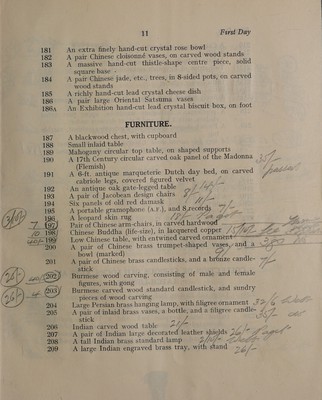 11 First Day
181 An extra finely hand-cut crystal rose bowl
182 A pair Chinese cloisonné vases, on carved wood stands
183 A massive hand-cut thistle-shape centre piece, solid
square base
184 A pair Chinese jade, etc., trees, in 8-sided pots, on carved
wood stands
185 A richly hand-cut lead crystal cheese dish
186 A pair large Oriental Satsuma vases
186A An Exhibition hand-cut lead crystal biscuit box, on foot
FURNITURE.
187 A blackwood chest, with cupboard
188 Small inlaid table
189 Mahogany circular top table, on shaped supports
190 A 17th Century circular carved oak panel of the Madonna
(Flemish) 35/-
191 A 6-ft. antique marqueterie Dutch day bed, on carved
cabriole legs, covered figured velvet
192 An antique oak gate-legged table
193 A pair of Jacobean design chairs
194 Six panels of old red damask
195 A portable gramophone (A.F.), and 8 records 7/-
196 A leopard skin rug
7 197 Pair of Chinese arm-chairs, in carved hardwood
10 198 Chinese Buddha (life-size), in lacquered copper
199 Low Chinese table, with entwined carved ornament
200 A pair of Chinese brass trumpet-shaped vases, and a
bowl (marked)
201 A pair of Chinese brass candlesticks, and a bronze candle-
stick 7/-
202 Burmese wood carving, consisting of male and female
figures, with gong
4 203 Burmese carved wood standard candlestick, and sundry
pieces of wood carving
204 Large Persian brass hanging lamp, with filigree ornament 32/6
205 A pair of inlaid brass vases, a bottle, and a filigree candle-
stick
206 Indian carved wood table 21/-
207 A pair of Indian large decorated leather shields 26/-
208 A tall Indian brass standard lamp
209 A large Indian engraved brass tray, with stand 26/-